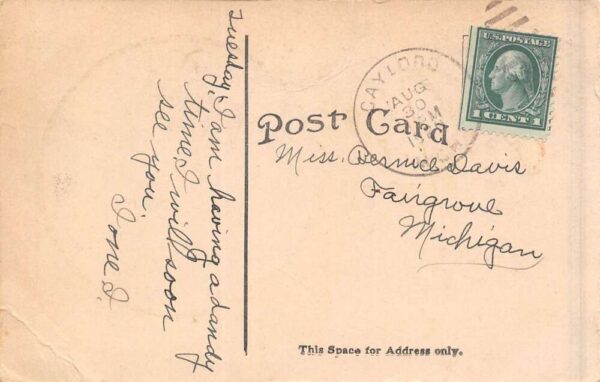 Tuesday, I am having a dandy
time I will soon
see you.
Ione I.
Post Card
GAYLORD
AUG
30
M
U.S. POSTAGE
1 CENT 1
Miss. Bernice Davis
Fairgrove
Michigan
This Space for Address only.